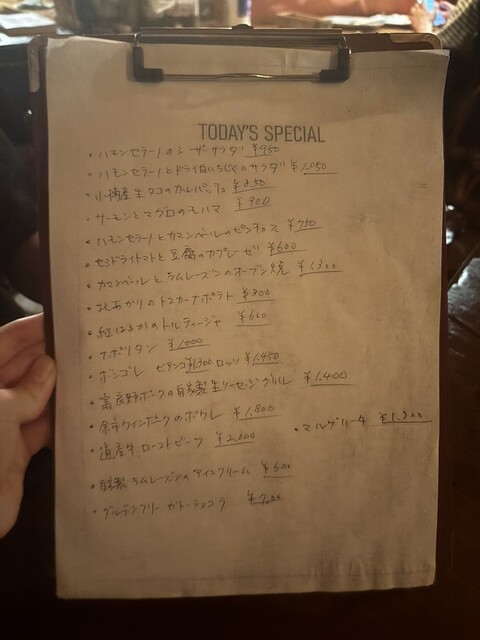 TODAY'S SPECIAL
・ハモンセラーノのシーザーサラダ ¥950
・ハモンセラーノとドライ白いちじくのサラダ ¥1,050
・小樽産生タコのカルパッチョ ¥850
・サーモンとマグロのモハマ ¥900
・ハモンセラーノとカマンベールのピンチョス ¥750
・セミドライトマトと豆腐のカプレーゼ ¥600
・カマンベールとラムレーズンのオーブン焼 ¥1,300
・北あかりのトスカーナポテト ¥800
・紅はるかのトルティージャ ¥600
・ナポリタン ¥1,000
・ボンゴレ ビアンコ ¥1,300 ロッソ ¥1,450
・富良野ポークの自家製生ソーセージグリル ¥1,400
・余市ワインポークのポワレ ¥1,800
・道産牛ローストビーフ ¥2,000
・マルゲリータ ¥1,300
・自家製ラムレーズンのアイスクリーム ¥600
・グルテンフリーガトーショコラ ¥700